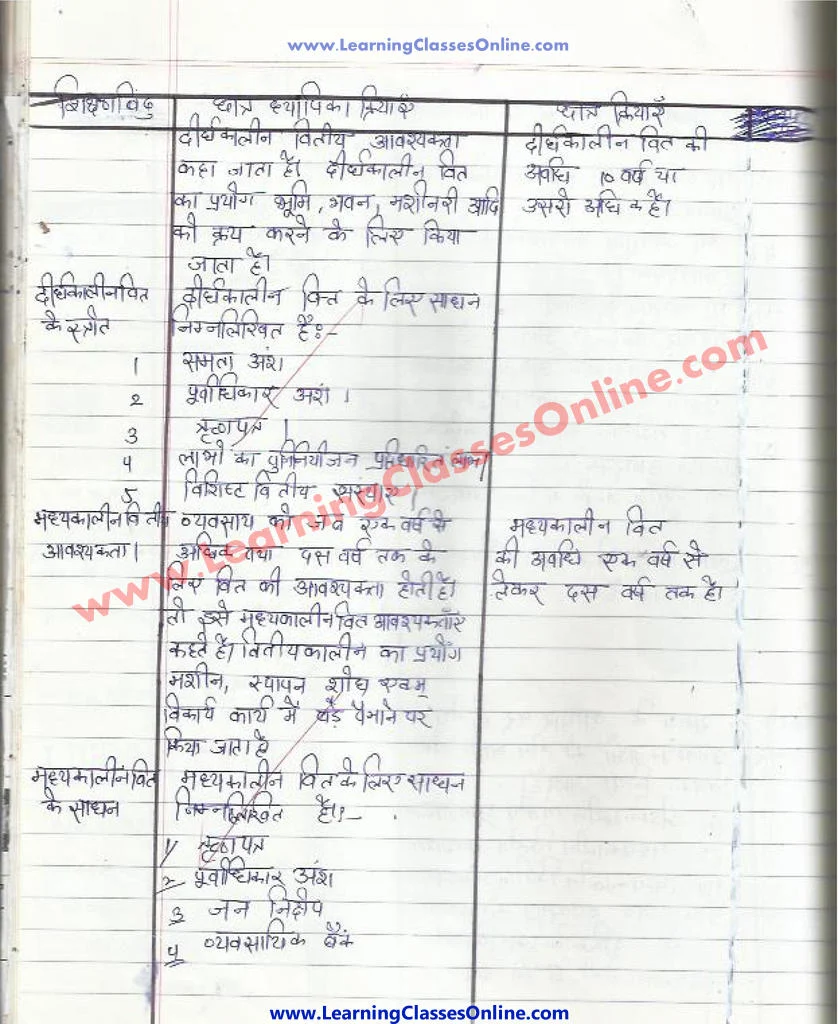 www.LearningClassesOnline.com
शिक्षण बिंदु छात्र ध्यापिका क्रियाएं छात्र क्रियाएँ
दीर्घकालीन वितीय आवश्यकता दीर्घकालीन वित की
कहा जाता है। दीर्घकालीन वित अवधि 10 वर्ष या
का प्रयोग भूमि, भवन, मशीनरी आदि उससे अधिक है।
को क्रय करने के लिए किया
जाता है।
दीर्घकालीन वित दीर्घकालीन वित्त के लिए साधन
के स्त्रोत निम्नलिखित हैं:-
1 समता अंश
2 पूर्वाधिकार अंश ।
3 ऋृणपत्र ।
4 लाभों का पुर्ननियोजन
5 विशिष्ट वितीय संस्थाए ।
मध्यकालीन वितीय व्यवसाय को जब एक वर्ष से मध्यकालीन वित
आवश्यकता। अधिक तथा दस वर्ष तक के की अवधि एक वर्ष से
लिए वित की आवश्यकता होती है। लेकर दस वर्ष तक है।
तो इसे मध्यकालीन वित आवश्यकताँए
कहते है। वितीयकालीन का प्रयोग
मशीन, स्थापन शोध एवम्
विकार्य कार्य में बड़े पैमाने पर
किया जाता है
मध्यकालीन वित मध्यकालीन वित के लिए साधन
के साधन निम्नलिखित है।:-
1 ऋृणपत्र
2 पूर्वाधिकार अंश
3 जन निक्षेप
4 व्यवसायिक बैंक
www.LearningClassesOnline.com
www.LearningClassesOnline.com